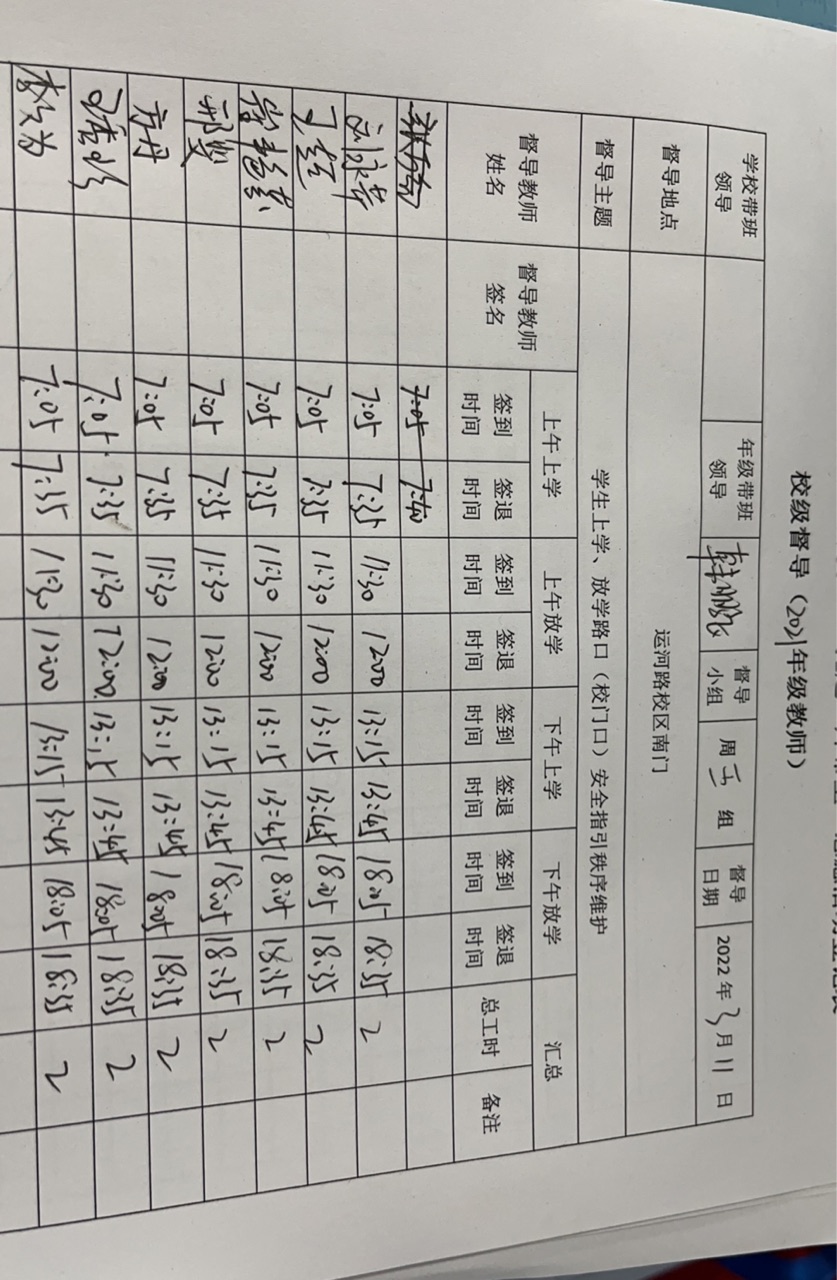 校级督导（2021年级教师）
学校带班领导 年级带班领导 督导小组 周五组 督导日期 2022年3月11日
督导地点 运河路校区南门
督导主题 学生上学、放学路口（校门口）安全指引秩序维护
督导教师姓名 督导教师签名 上午上学 上午放学 下午上学 下午放学 汇总
签到时间 签退时间 签到时间 签退时间 签到时间 签退时间 签到时间 签退时间 总工时 备注
7:05 7:40
7:05 7:35 11:30 1200 13:15 13:45 18:05 18:35 2
7:05 7:35 11:30 12:00 13:15 13:45 18:05 18:35 2
7:05 7:35 11:30 12:00 13:15 13:45 18:05 18:35 2
邢雯 7:05 7:35 11:30 12:00 13:15 13:45 18:05 18:35 2
方丹 7:05 7:35 11:30 12:00 13:15 13:45 18:05 18:35 2
7:05 7:35 11:30 12:00 13:15 13:45 18:05 18:35 2
7:05 7:35 11:30 12:00 13:15 13:45 18:05 18:35 2